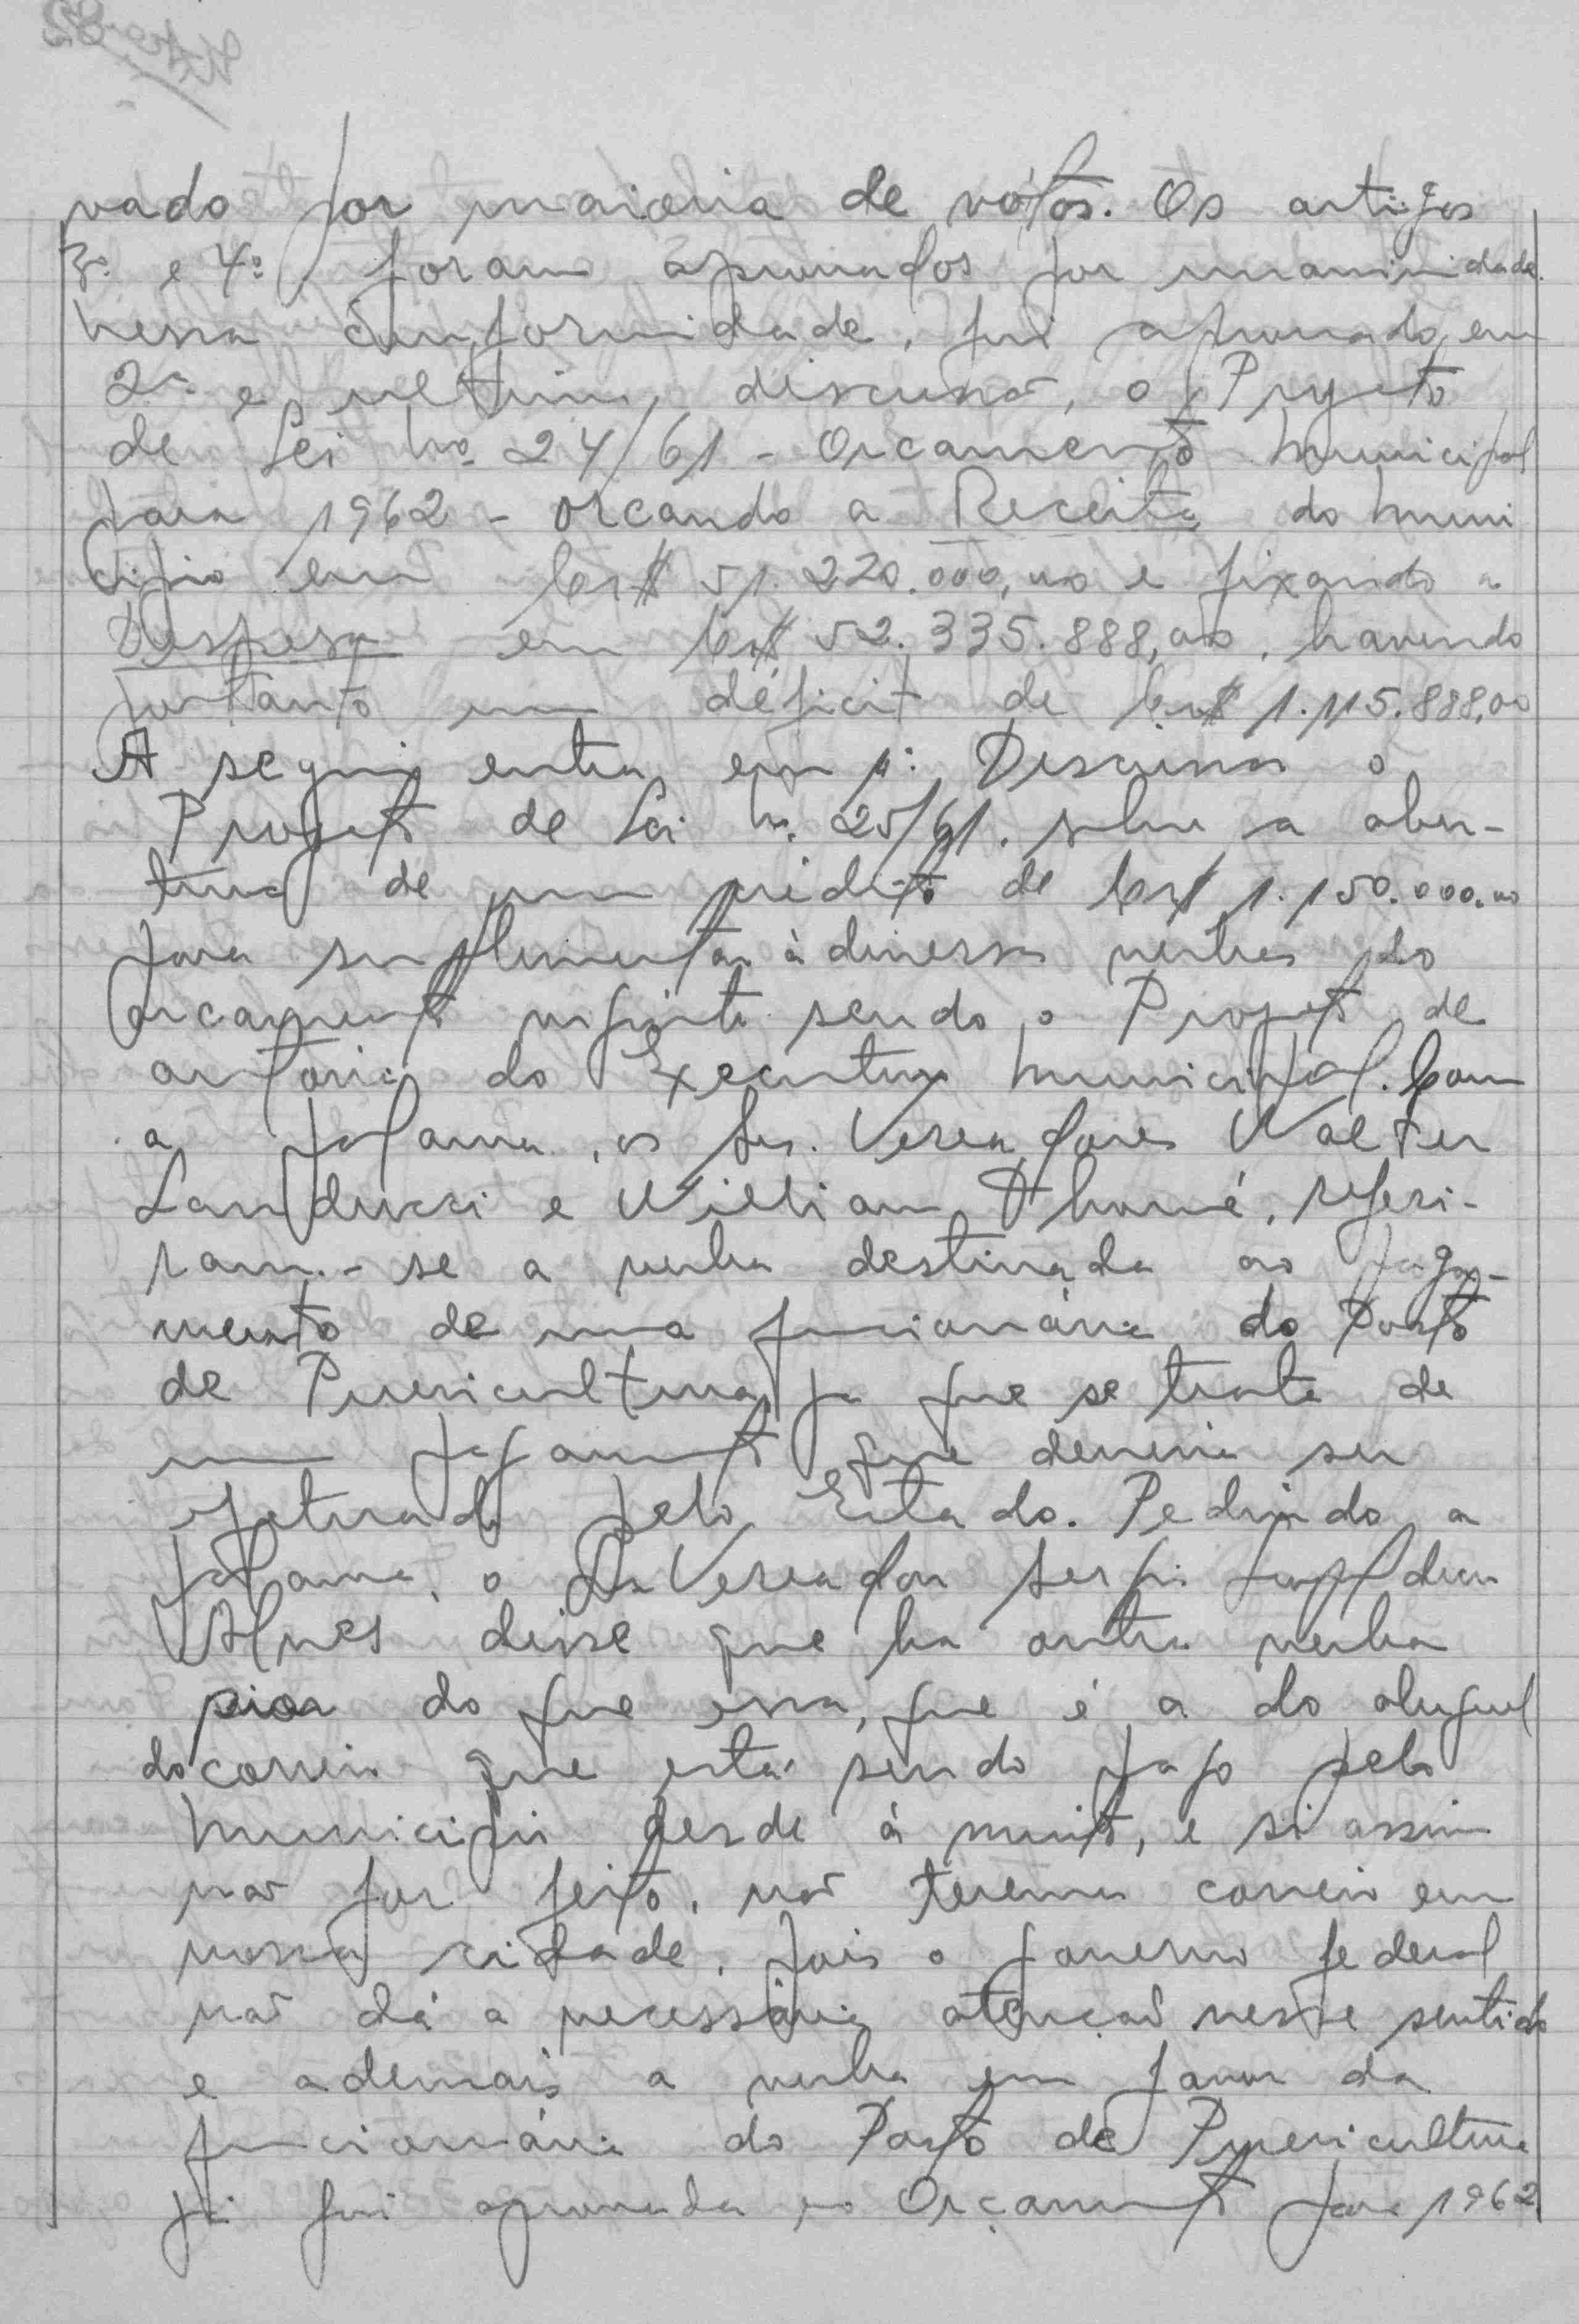 vado por maioria de vótos. Os artigos
3º e 4º foram aprovados por unanimidade.
Nessa conformidade, foi aprovado, em
2ª e ultima discussão, o Projeto
de Lei nº 24/61 - Orcamento Municipal
para 1962 - orcando a Receita do Muni
cipio em Cr$ 51.220.000,00 e fixando a
Despesa em Cr$ 52.335.888,00, havendo
portanto um déficit de Cr$ 1.115.888,00
A seguir, entra em 1ª Discussão o
Projeto de Lei nº 25/61, sobre a aber-
tura de um crédito de Cr$ 1.150.000,00
para suplementar à diversas verbas do
orcamento vigente sendo o Projeto de
autoria do Executivo Municipal. Com
a palavra, os Srs. Vereadores Walter
Landucci e William Thomé, referi-
ram-se a verba destinada ao paga-
mento de uma funcionária do Posto
de Puericultura, ja que se trata de
um pagamento que deveria ser
efetuado pelo Estado. Pedindo a
palavra, o Sr. Vereador
Alves disse que ha outra verba
pior do que essa, que é a do aluguel
do correio que está sendo pago pelo
Municipio desde á muito, e si assim
não for feito, não teremos correio em
nossa cidade, pois o governo federal
não dá a necessária atenção nesse sentido
e ademais a verba em favor da
funcionária do Posto de Puericultura
já foi aprovada no Orçamento para 1962.